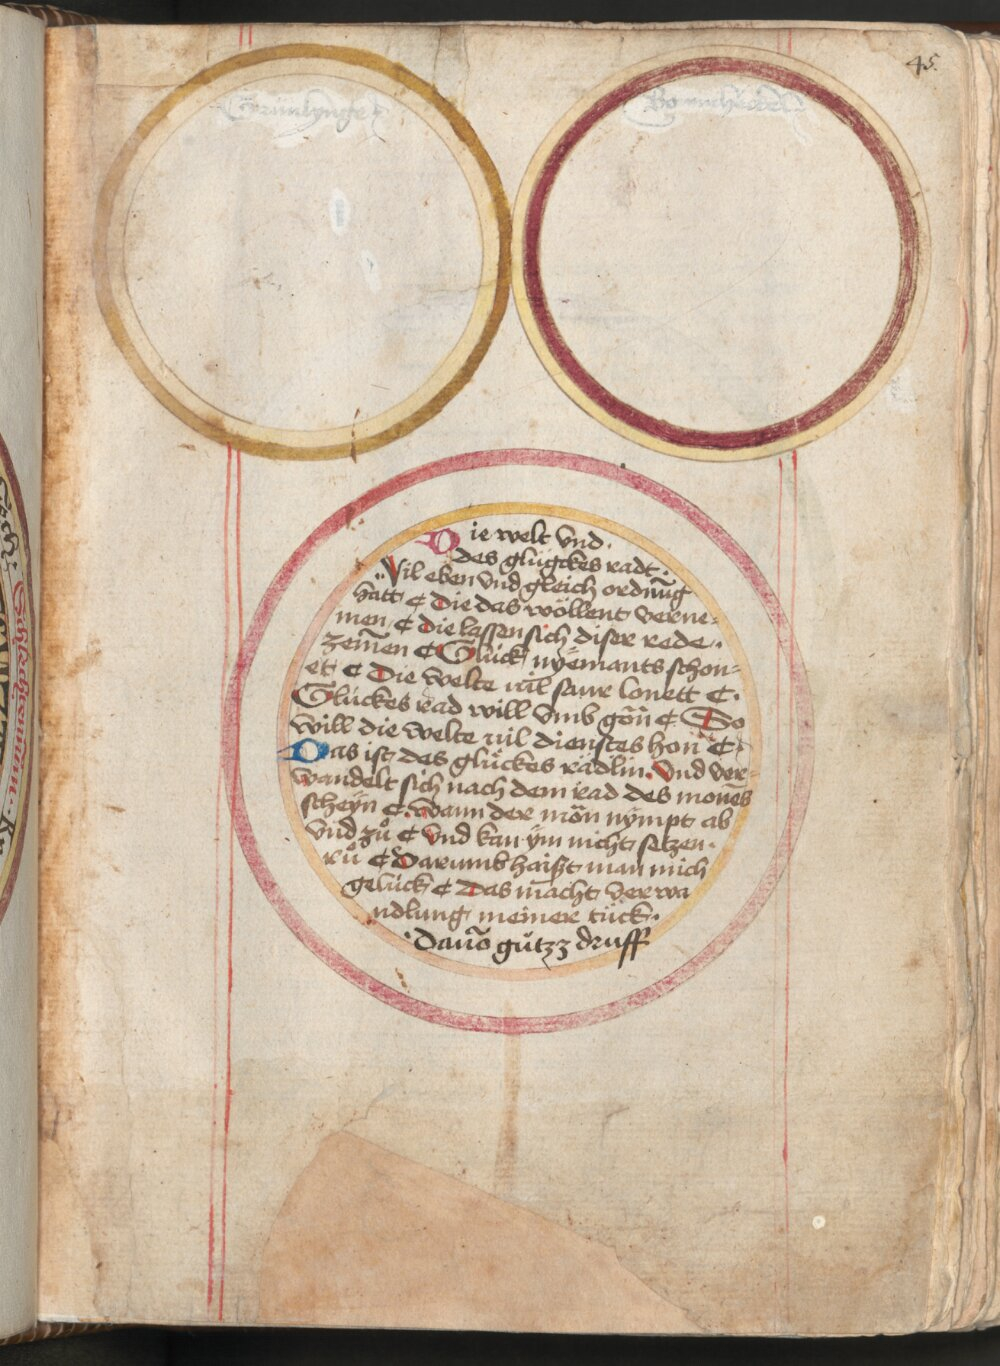 45.
Die welt vnd
des glückes radt.
Wil eben vnd gleich ordnūg
hatt ¢ Die das wöllent verne-
men ¢ die lassen sich diser rede.
zemen ¢ Glück nyemants schon-
et ¢ Die welte vil saur lonett ¢.
Glückes rad will vmb gön̄ ¢ So
will die welte vil dienstes hon ¢
Das ist des glückes rädlin. Vnd ver-
wandelt sich nach dem rad des mones
scheyn ¢. wann der mon nympt ab
vnd zů ¢ Vnd kan ym nicht setzen.
rů ¢ Darumb haißt man mich
gelück ¢ Das macht verwa
ndlung meiner tück.
. Dauō gůtzz druff